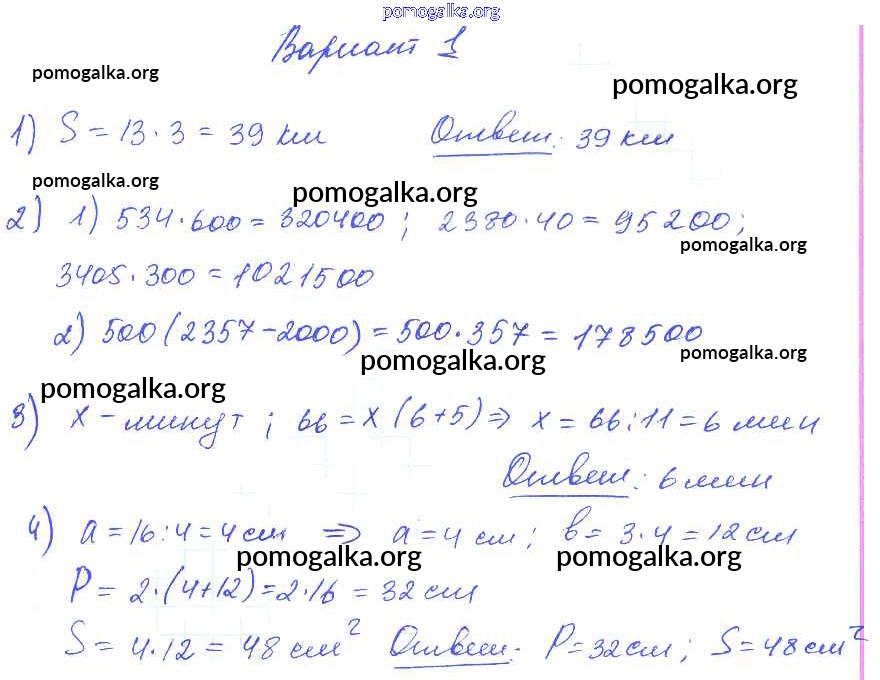 pomogalka.org
Вариант 1
pomogalka.org
pomogalka.org
1) S = 13 · 3 = 39 км Ответ: 39 км
pomogalka.org
pomogalka.org
2) 1) 534 · 600 = 320400 ; 2380 · 40 = 95200;
pomogalka.org
3405 · 300 = 1021500
2) 500 (2357 - 2000) = 500 · 357 = 178500
pomogalka.org
pomogalka.org
pomogalka.org
3) x - минут ; 66 = x (6+5) => x = 66 : 11 = 6 мин
Ответ: 6 мин
4) a = 16 : 4 = 4 см => a = 4 см ; b = 3 · 4 = 12 см
pomogalka.org pomogalka.org
P = 2 · (4+12) = 2 · 16 = 32 см
S = 4 · 12 = 48 см² Ответ: P = 32 см ; S = 48 см²